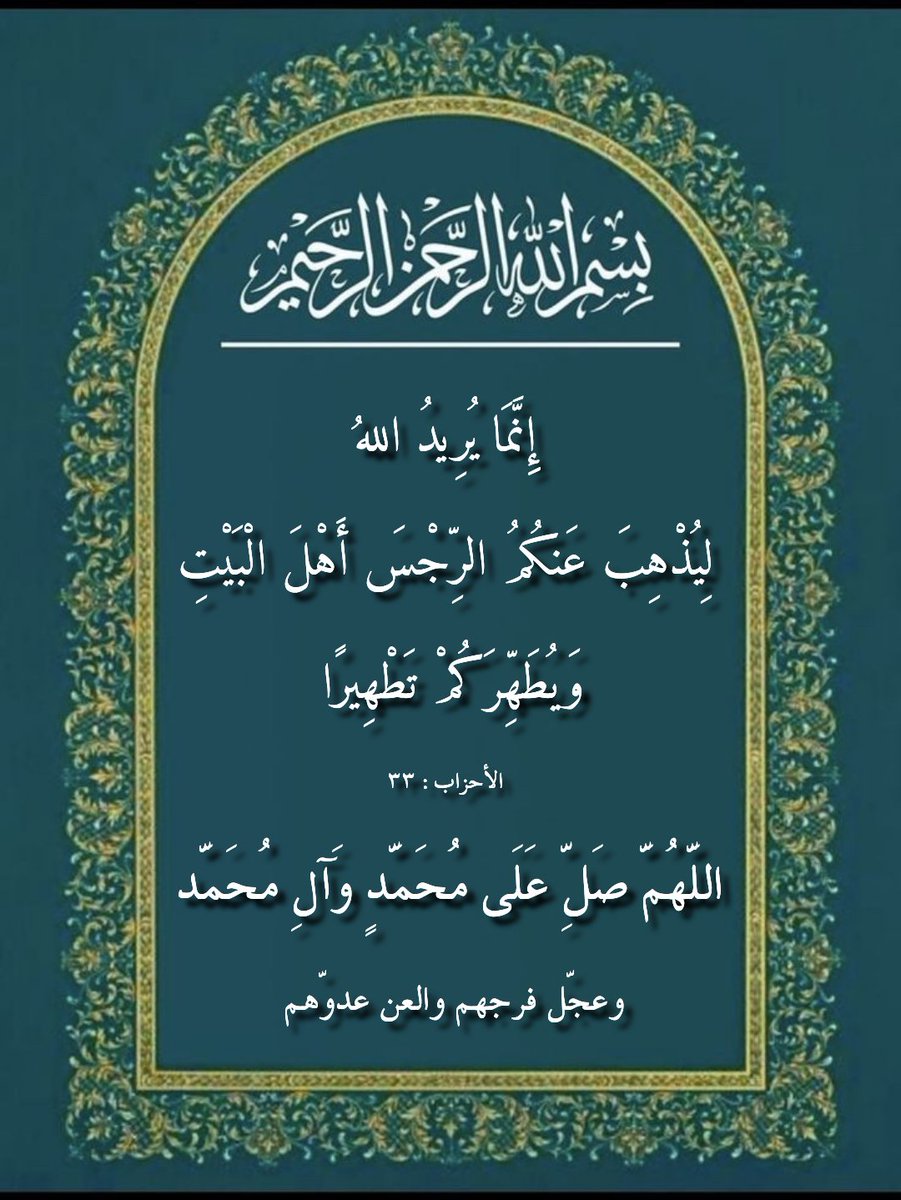 بِسْمِ اللهِ الرَّحْمٰنِ الرَّحِيمِ
إِنَّمَا يُرِيدُ اللهُ
لِيُذْهِبَ عَنكُمُ الرِّجْسَ أَهْلَ الْبَيْتِ
وَيُطَهِّرَكُمْ تَطْهِيرًا
الأحزاب : ٣٣
اللّهُمّ صَلِّ عَلَى مُحَمّدٍ وَآلِ مُحَمّد
وعجّل فرجهم والعن عدوّهم